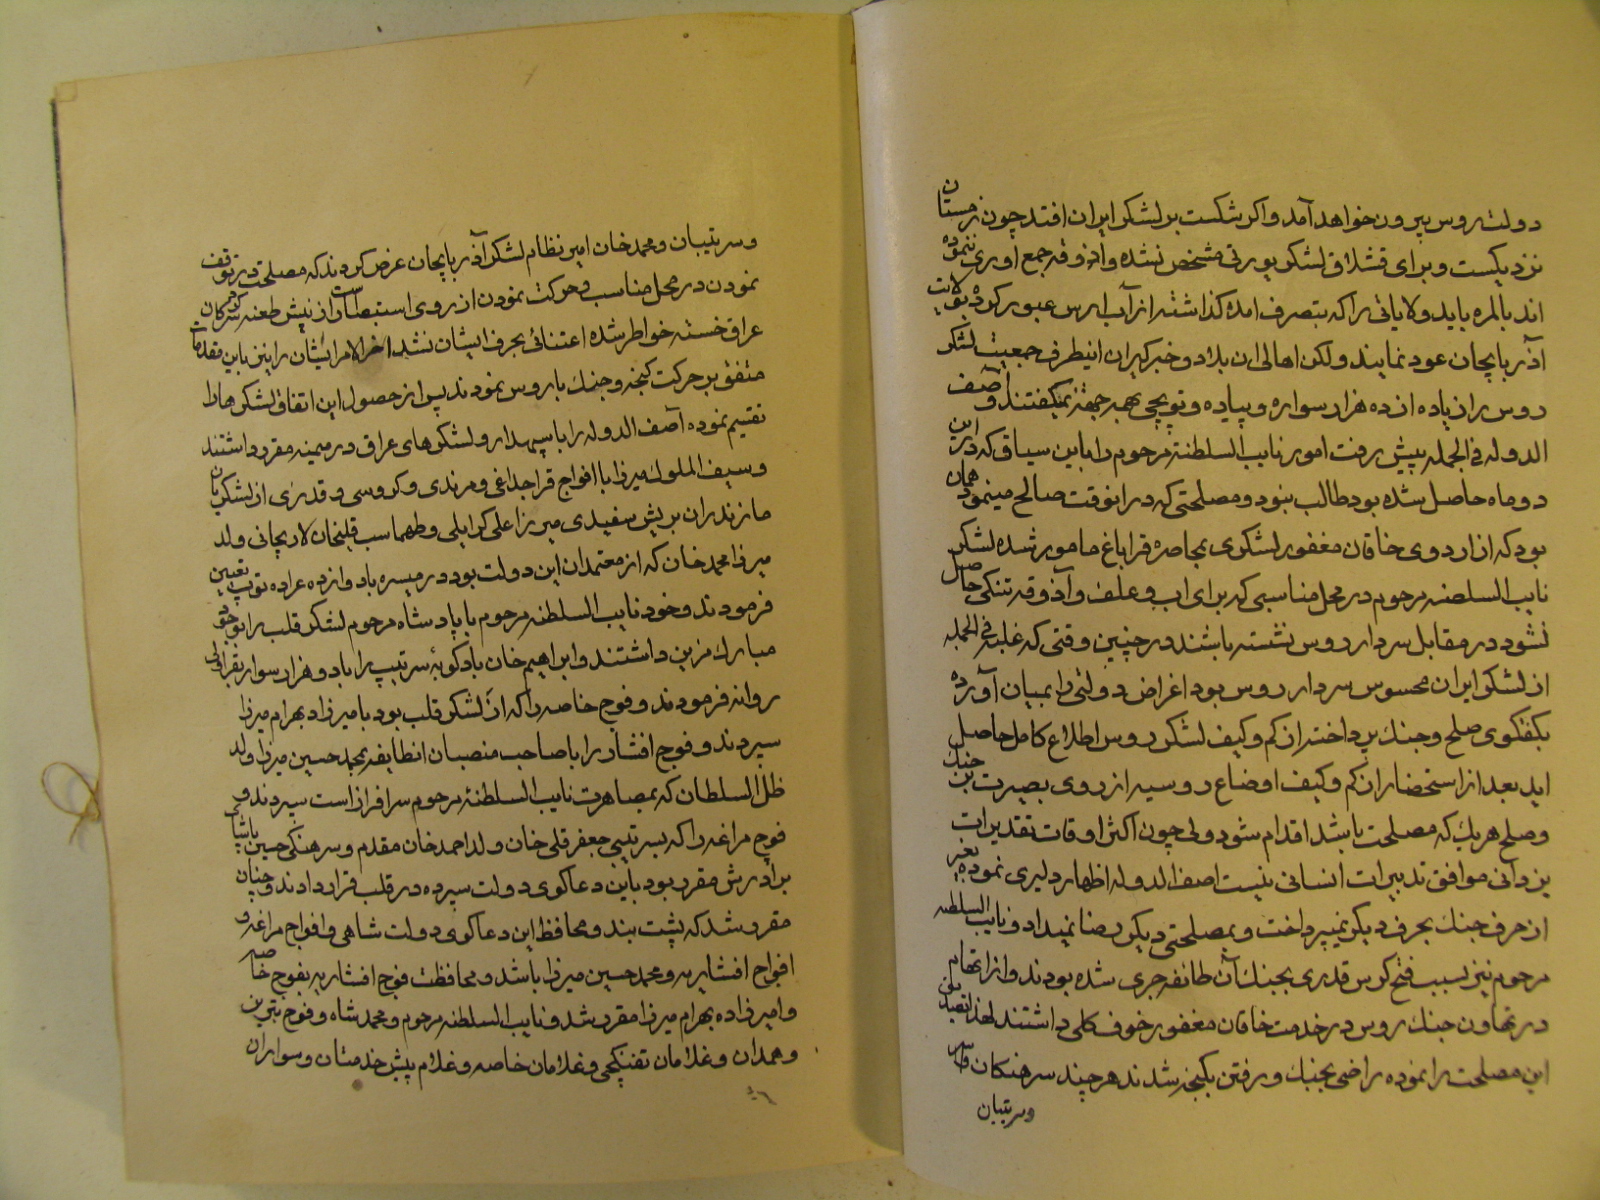 دولت روس بیرون خواهد آمد و اکر شکست بر لشکر ایران افتد چون زمستان
نزدیکست و برای قشلاق لشکر یورتی مشخص نشده و آذوقه جمع اوری ننموده
اند بالمره باید ولایاتی را که بتصرف امده کذاشته از آب ارس عبور کرده بولایت
آذربایجان عود نمایند ولکن اهالی ان بلاد و خبرکیران اینطرف جمعیت لشکر
روس را زیاده از ده هزار سواره و پیاده و توپچی بهیچ جهة نمیکفتند و آصف
الدوله فی الجمله پیش رفت امور نایب السلطنة مرحوم را باین سیاق که در این
دو ماه حاصل شده بود طالب نبود و مصلحتی که در انوقت صالح مینمود همان
بود که از اردوی خاقان مغفور لشکری بمحاصره قراباغ مامور شده لشکر
نایب السلطنه مرحوم در محل مناسبی که برای اب و علف و آذوقه تنکی حاصل
نشود در مقابل سردار روس نشسته باشند در چنین وقتی که غلبه فی الجمله
از لشکر ایران محسوس سردار روس بود اغراض دولتی را بمیان آورده
بکفتکوی صلح و جنك پرداخته از کم و کیف لشکر روس اطلاع کامل حاصل
اید بعد از استحضار از کم و کیف اوضاع روسیه از روی بصیرت بر جنك
و صلح هریك که مصلحت باشد اقدام شود ولی چون اکثر اوقات تقدیرات
یزدانی موافق تدبیرات انسانی نیست اصف الدوله اظهار دلیری نموده بغیر
از حرف جنك بحرف دیکر نمیپرداخت و بمصلحتی دیکر رضا نمیداد و نایب السلطنه
مرحوم نیز بسبب فتح کرس قدری بجنك آن طائفه جری شده بودند و از اتهام
در تهاون جنك روس در خدمت خاقان مغفور خوف کلی داشتند لهذا تصدیق
این مصلحت را نموده راضی بجنك و رفتن بکنجه شدند هر چند سرهنکان
و سرتیبان
و سرتیبان و محمد خان امیر نظام لشکر آذربایجان عرض کردند که مصلحت در توقف
نمودن در محل مناسب و حرکت نمودن از روی استبصار است از نیش طعنه سرکردکان
عراق خسته خواطر شده اعتنائی بحرف ایشان نشد اخر الامر ایشان را نیز باین مقدمات
متفق بر حرکت کنجه و جنك با روس نمودند پس از حصول این اتفاق لشکرها را
تقسیم نموده آصف الدوله را با سپهدار و لشکرهای عراق در میمنه مقرر داشتند
و سیف الملوك میرزا با افواج قراجداغی و مرندی و کروسی و قدری از لشکریان
مازندران بریش سفیدی میرزا علی کرایلی و طهماسب قلیخان لاریجانی ولد
میرزا محمد خان که از معتمدان این دولت بود در میسره با دوازده عراده توپ تعیین
فرمودند و خود نایب السلطنه مرحوم با پادشاه مرحوم لشکر قلب را بوجود
مبارك مزین داشتند و ابراهیم خان بادکوبهٔ سرتیپ را با دو هزار سوار بقراولی
روانه فرمودند و فوج خاصه را که از لشکر قلب بود با میرزاد بهرام میرزا
سپردند و فوج افشار را با صاحب منصبان انطایفه بمحمد حسین میرزا ولد
ظل السلطان که بمصاهرت نایب السلطنة مرحوم سرافراز است سپردند و
فوج مراغه را که بسرتیپی جعفر قلی خان ولد احمد خان مقدم و سرهنکی حسین پاشا
برادرش مقرر بود باین دعاکوی دولت سپرده در قلب قرار دادند و چنان
مقرر شد که پشت بند و محافظ این دعاکوی دولت شاهی و افواج مراغه و
افواج افشاریه و محمد حسین میرزا باشد و محافظت فوج افشاریه بفوج خاصه
و امیرزاده بهرام میرزا مقرر شد و نایب السلطنه مرحوم و محمد شاه و فوج تبریز
و همدان و غلامان تفنکچی و غلامان خاصه و غلام پیش خدمتان و سواران